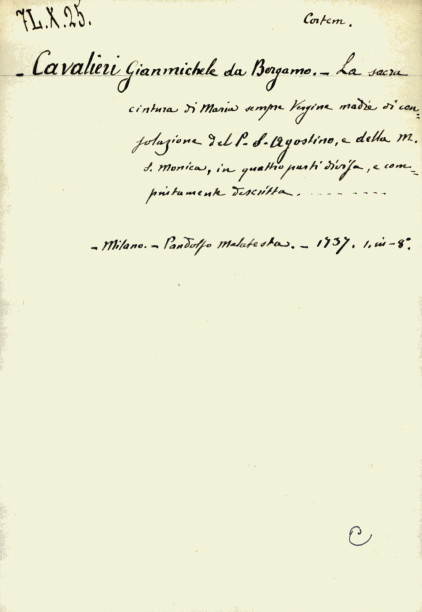 7L.X.25.
Cortem.
- Cavalieri Gianmichele da Bergamo. - La sacra
cintura di Maria sempre Vergine madre di con-
solazione del P. S. Agostino, e della M.
S. Monica, in quattro parti divisa, e com-
piutamente descritta. - - - - - - - -
- Milano. - Pandolfo Malatesta. - 1737. 1. in-8°.
C